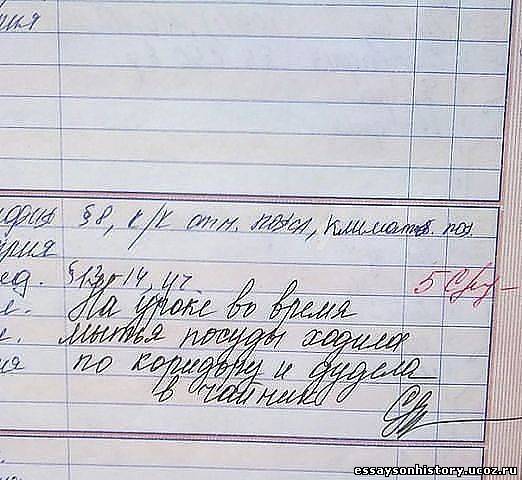 ия
§8, к/к отн. позл, климатов. поя.
рия
ед. §13, 14, уч 5
На уроке во время
мытья посуды ходила
по коридору и дудела
в чайник
essaysonhistory.ucoz.ru